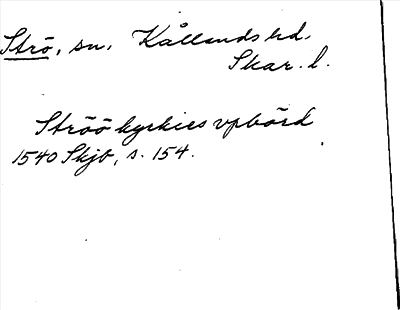 Strö, sn. Kållands hd.
Skar. l.
Ströö kyrkies vpbörd
1540 Skjb, s. 154.